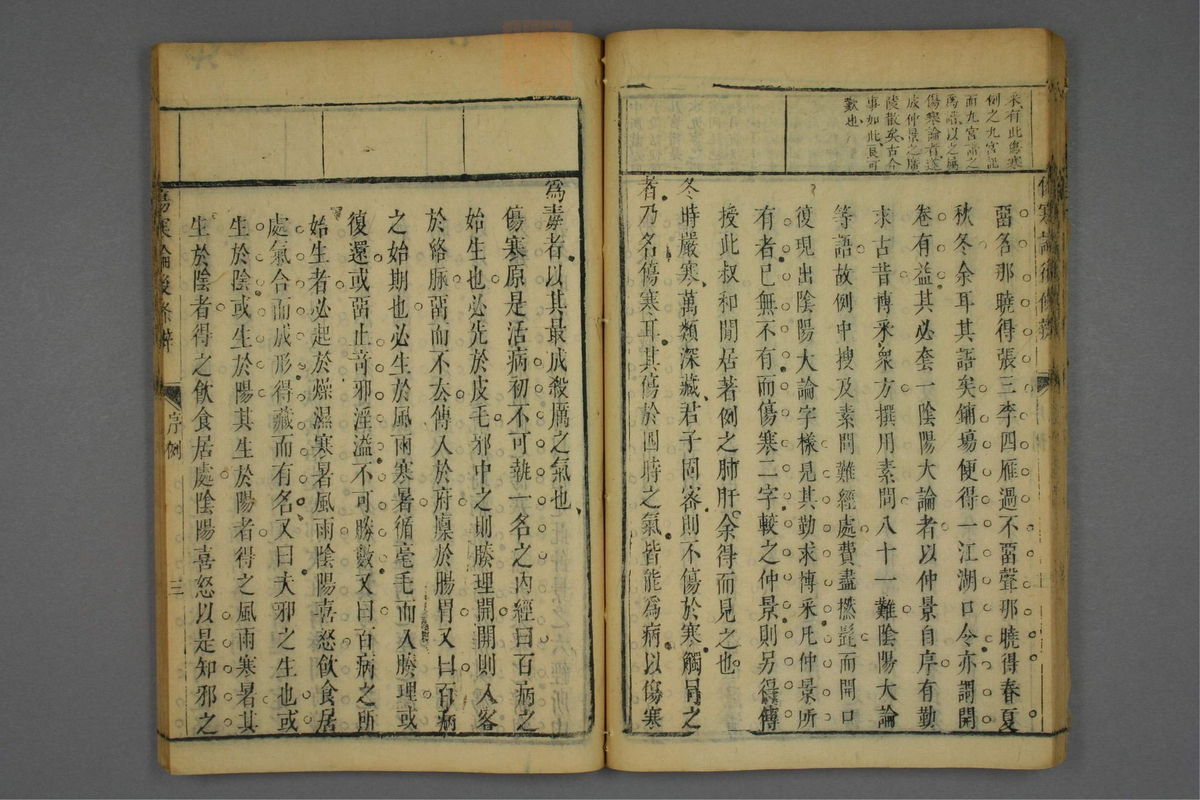 有此
例之九宮
而九宮
爲語以之屬
傷寒論者遂
成仲景之廣
陵散矣古今
事如此良可
歎也
傷寒論後條辨
畱名那曉得張三李四雁過不畱聲那曉得春夏
秋冬余耳其語矣鋪塲便得一江湖口今亦謂開
卷有益其必套一陰陽大論者以仲景自序有勤
求古昔博采衆方撰用素問八十一難陰陽大論
等語故例中搜及素問難經處費盡撚髭而開口
復現出陰陽大論字樣見其勤求博采凡仲景所
有者已無不有而傷寒二字較之仲景則另得傳
授此叔和閒居著例之肺肝余得而見之也
冬時嚴寒萬類深藏君子固密則不傷於寒觸冒之
者乃名傷寒耳其傷於四時之氣皆能爲病以傷寒
爲毒者以其最成殺厲之氣也
傷寒原是活病初不可執一名之內經曰百病之
始生也必先於皮毛邪中之則腠理開開則入客
於絡脉畱而不去傳入於府廩於腸胃又曰百病
之始期也必生於風雨寒暑循毫毛而入腠理或
復還或畱止竒邪淫溢不可勝數又曰百病之所
始生者必起於燥濕寒暑風雨陰陽喜怒飲食居
處氣合而成形得藏而有名又曰夫邪之生也或
生於陰或生於陽其生於陽者得之風雨寒暑其
生於陰者得之飲食居處陰陽喜怒以是知邪之
傷寒論後條辨
序例
三